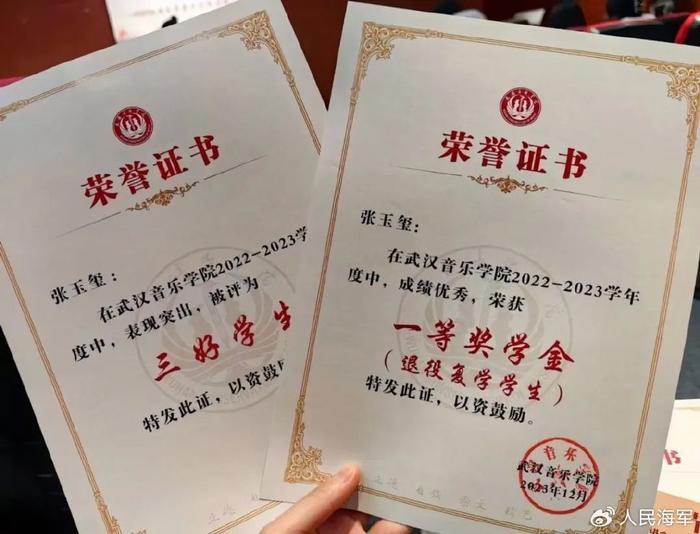 荣誉证书
张玉玺：
在武汉音乐学院2022-2023学
度中，表现突出，被评为
三好学生
特发此证，以资鼓
荣誉证书
张玉玺：
在武汉音乐学院2022-2023学年
度中，成绩优秀，荣获
一等奖学金
（退役复学学生）
特发此证，以资鼓励。
音乐
武汉音乐学院
2023年12月
证书
@人民海军